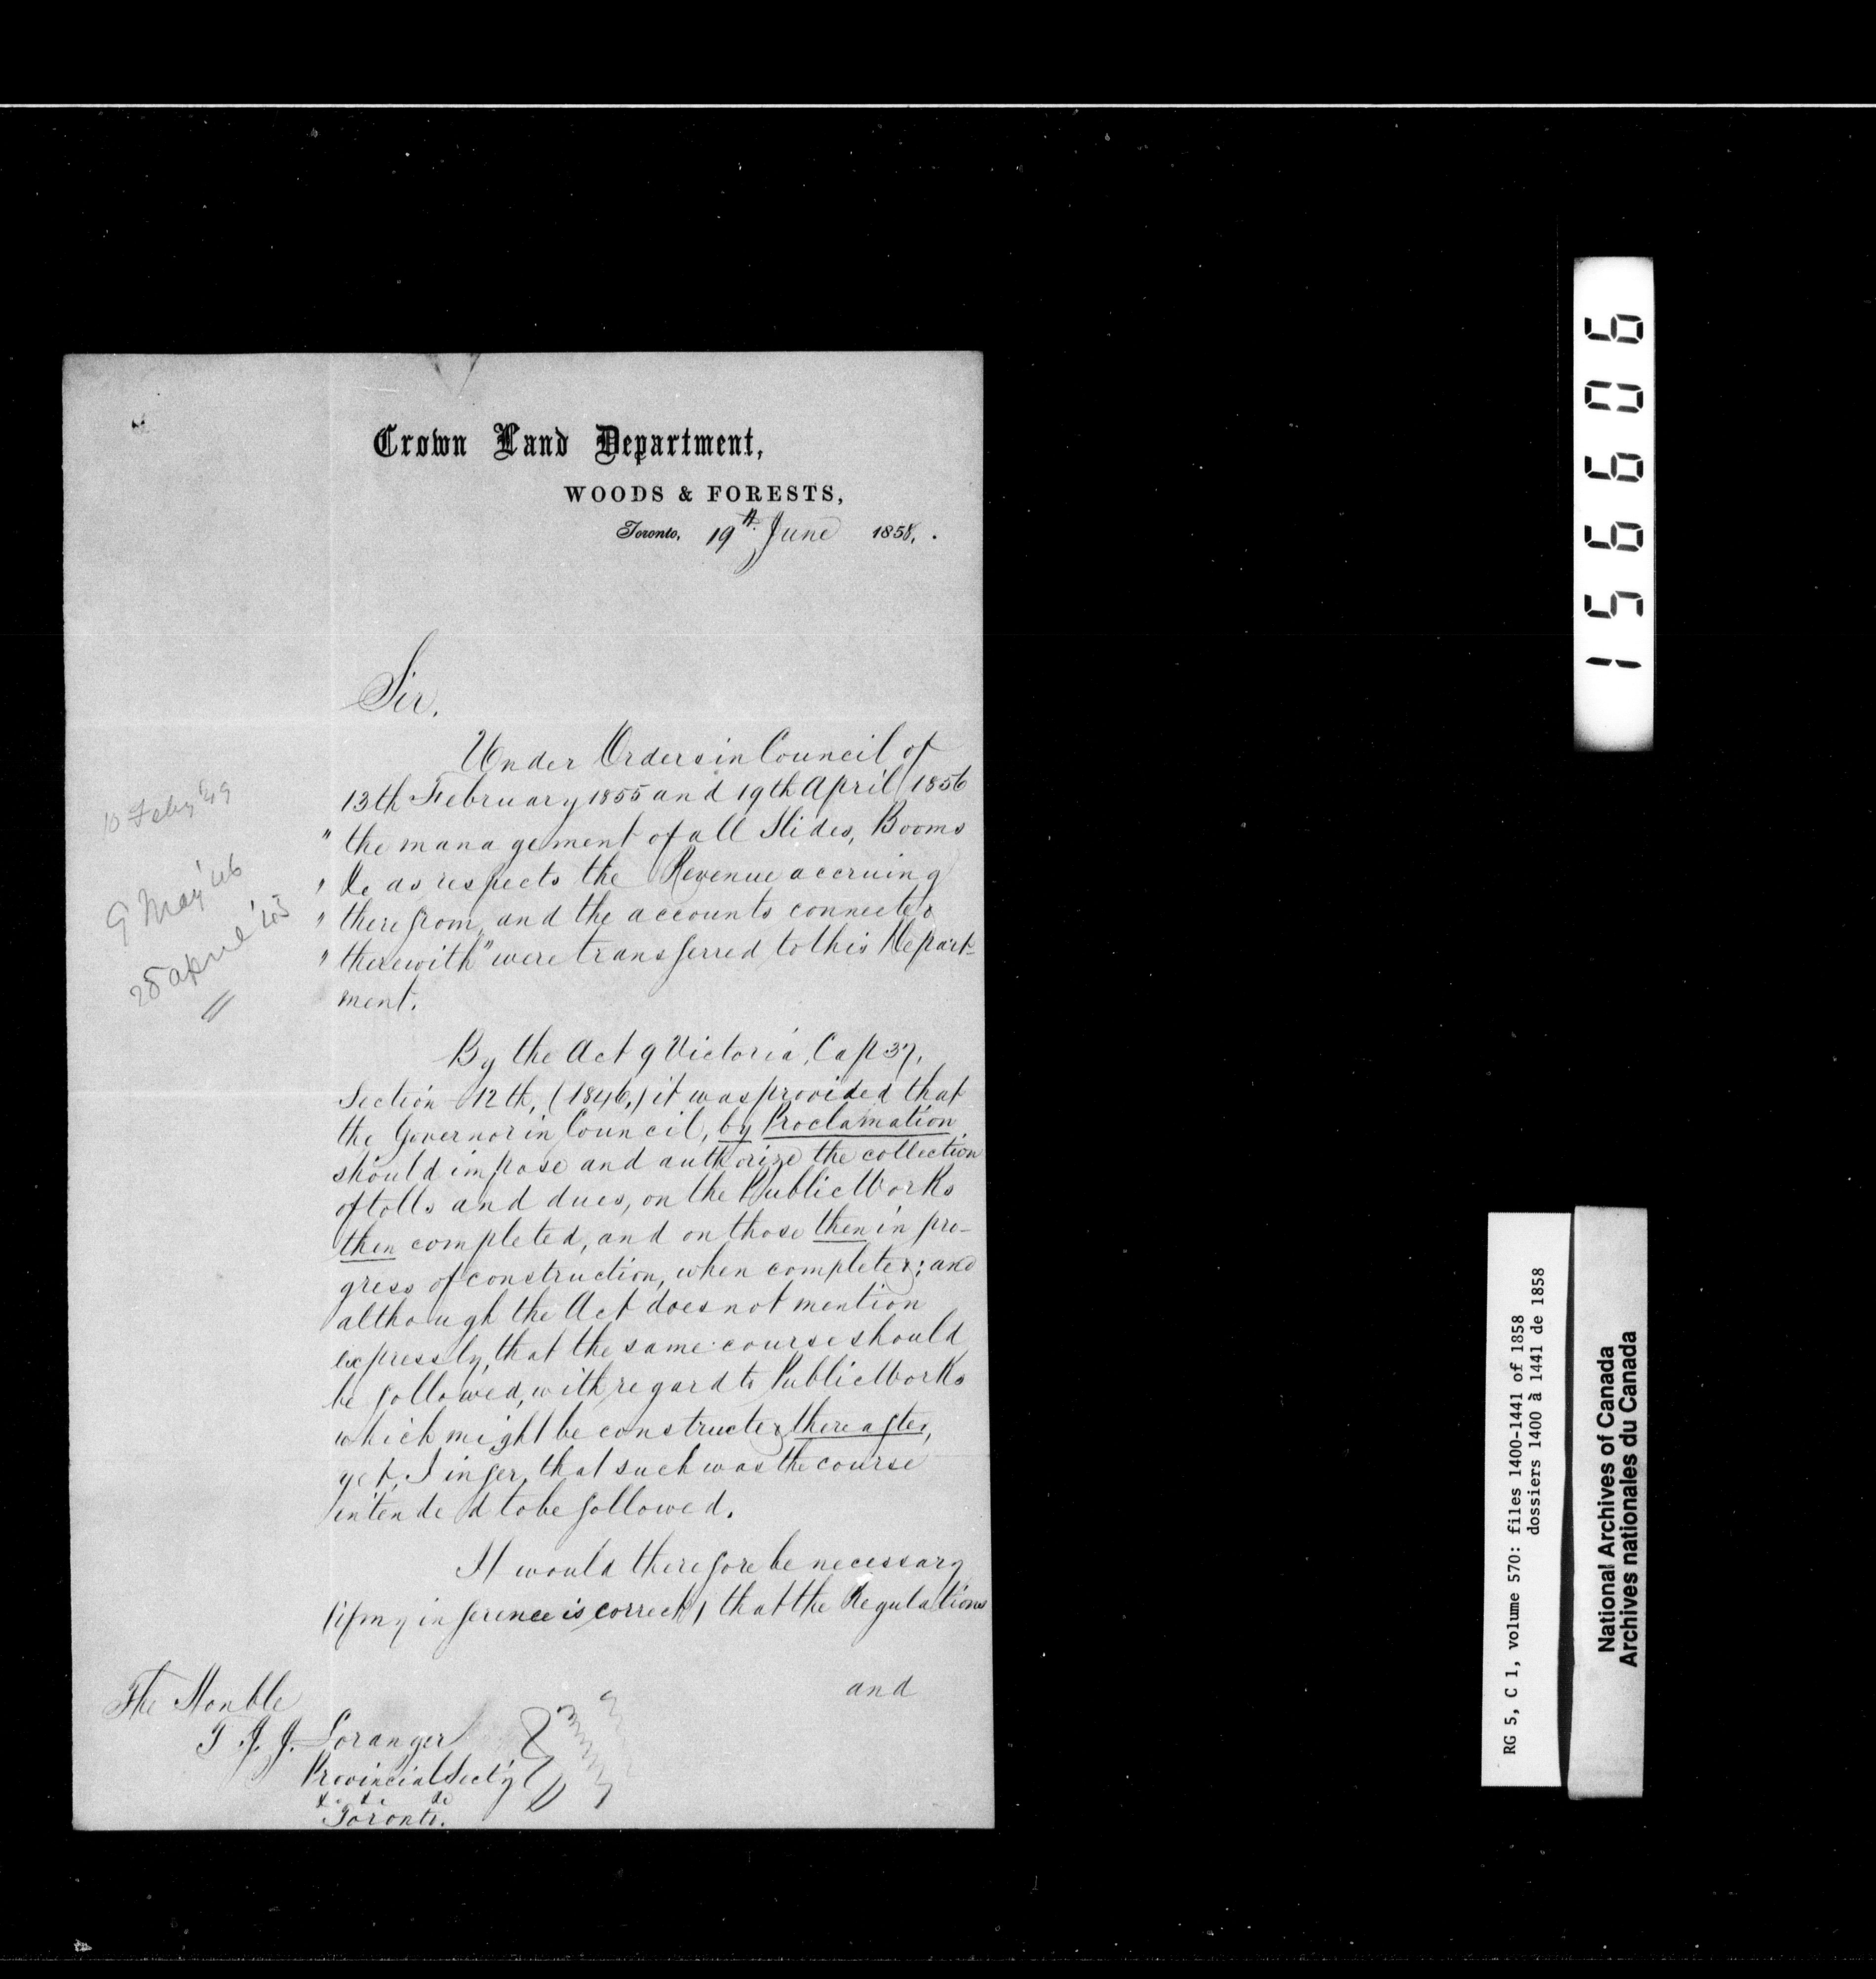 Crown Land Department,
WOODS & FORESTS,
Toronto, 19th June 1858.
Sir,
Under Orders in Council of
13th February 1855 and 19th April 1856
" the management of all Slides, Booms
" &c as respects the Revenue accruing
" therefrom, and the accounts connected
" therewith" were transferred to this Depart-
ment.
10 Feby '49
9 May '46
28 April '45
By the Act 9 Victoria, Cap 37,
Section 12th, (1846,) it was provided that
the Governor in Council, by Proclamation
should impose and authorize the collection
of tolls and dues, on the Public Works
then completed, and on those then in pro-
gress of construction, when completed; and
although the Act does not mention
expressly, that the same course should
be followed, with regard to Public Works
which might be constructed thereafter,
yet, I infer, that such was the course
intended to be followed.
It would therefore be necessary
(if my inference is correct) that the Regulations
and
The Honble
T. J. J. Loranger
Provincial Secty
&c &c &c
Toronto.
156606
RG 5, C 1, volume 570: files 1400-1441 of 1858
dossiers 1400 à 1441 de 1858
National Archives of Canada
Archives nationales du Canada